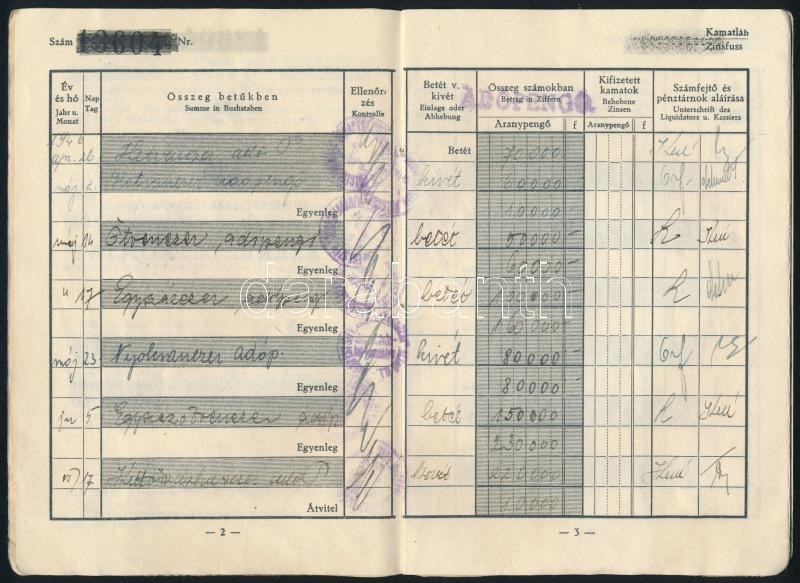 Szám 13604 Nr.
Kamatláb
Zinsfuss
Év és hó
Jahr u. Monat
Nap
Tag
Összeg betűkben
Summe in Buchstaben
Ellenőrzés
Kontrolle
Betét v. kivét
Einlage oder Abhebung
Összeg számokban
Betrag in Ziffern
Aranypengő f
ADÓPENGŐ
Kifizetett kamatok
Behobene Zinsen
Aranypengő f
Számfejtő és pénztárnok aláírása
Unterschrift des Liquidators u. Kassiers
1946
ápr. 26 Hetvenezer adó P Betét 70.000
máj 2. Hatvanezer adópengő kivét 60000
Egyenleg 10000
máj 14 Ötvenezer adópengő betét 50000
Egyenleg 60000
u 17 Egyszázezer adópengő 100000
Egyenleg 160000
máj 23. Nyolcvanezer adóp. kivét 80000
Egyenleg 80000
jun 5 Egyszázötvenezer adóp betét 150000
Egyenleg 230000
17 220000
Átvitel 10000
darabanth
— 2 —
— 3 —